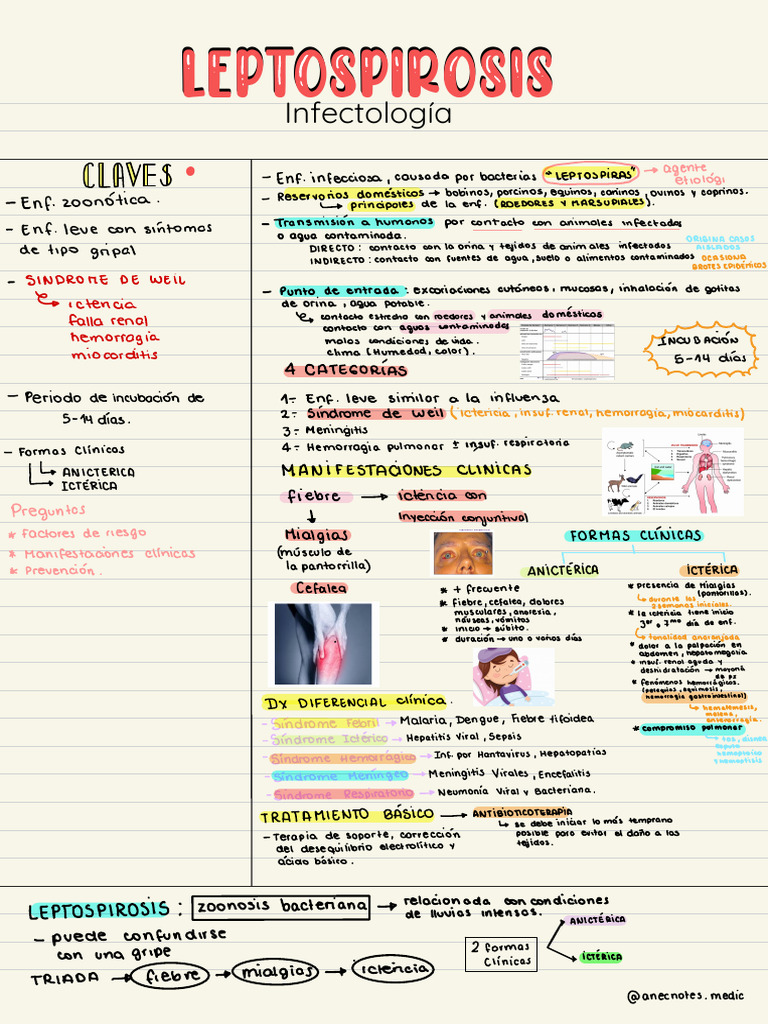 LEPTOSPIROSIS
Infectología
CLAVES
- Enf. zoonótica.
- Enf. leve con síntomas
de tipo gripal
- SINDROME DE WEIL
ictericia
falla renal
hemorragia
miocarditis
- Periodo de incubación de
5-14 días.
- Formas Clínicas
ANICTERICA
ICTÉRICA
Preguntas
* Factores de riesgo
* Manifestaciones clínicas
* Prevención.
- Enf. infecciosa, causada por bacterias "LEPTOSPIRAS" → agente
etiológi
- Reservorios domésticos → bobinos, porcinos, equinos, caninos, ovinos y caprinos.
principales de la enf. (ROEDORES Y MARSUPIALES).
- Transmisión a humanos por contacto con animales infectados
o agua contaminada.
DIRECTO: contacto con la orina y tejidos de animales infectados ORIGINA CASOS
AISLADOS
INDIRECTO: contacto con fuentes de agua, suelo o alimentos contaminados OCASIONA
BROTES EPIDÉMICOS
- Punto de entrada: excoriaciones cutáneos, mucosas, inhalación de gotitas
de orina, agua potable.
contacto estrecho con roedores y animales domésticos
contacto con aguas contaminadas
malas condiciones de vida.
clima (Humedad, calor).
INCUBACIÓN
5-14 días
4 CATEGORÍAS
1.- Enf. leve similar a la influensa
2.- Síndrome de Weil (ictericia, insuf. renal, hemorragia, miocarditis)
3.- Meningitis
4.- Hemorragia pulmonar ± insuf. respiratoria
MANIFESTACIONES CLINICAS
fiebre → ictericia con
inyección conjuntival
Mialgias
(músculo de
la pantorrilla)
Cefalea
FORMAS CLÍNICAS
ANICTÉRICA
* + frecuente
* Fiebre, cefalea, dolores
musculares, anorexia,
náuseas, vómitos
* inicio → súbito.
* duración → uno o varios días
ICTÉRICA
* presencia de Mialgias
(pantorrillas).
durante las
2 semanas iniciales.
* la ictericia tiene inicio
3er o 7mo día de enf.
tonalidad anaranjada
* dolor a la palpación en
abdomen, hepatomegalia
* insuf. renal aguda y
deshidratación → mayoría
de px
* fenómenos hemorrágicos.
(petequias, equimosis,
hemorragia gastrointestinal)
hematemesis,
melena,
enterorragia.
* compromiso pulmonar
tos, disnea
esputo
hemoptoico
y hemoptisis
Dx DIFERENCIAL clínica.
- Síndrome Febril → Malaria, Dengue, Fiebre tifoidea
- Síndrome Ictérico → Hepatitis Viral, Sepsis
- Síndrome Hemorrágico → Inf. por Hantavirus, Hepatopatías
- Síndrome Meníngeo → Meningitis Virales, Encefalitis
- Síndrome Respiratorio → Neumonía Viral y Bacteriana.
TRATAMIENTO BÁSICO → ANTIBIOTICOTERAPIA
se debe iniciar lo más temprano
posible para evitar el daño a los
tejidos.
- Terapia de soporte, corrección
del desequilibrio electrolítico y
ácido básico.
LEPTOSPIROSIS: zoonosis bacteriana → relacionada con condiciones
de lluvias intensas.
- puede confundirse
con una gripe
2 formas
Clínicas
ANICTÉRICA
ICTÉRICA
TRIADA → fiebre → mialgias → ictericia
@anecnotes.medic